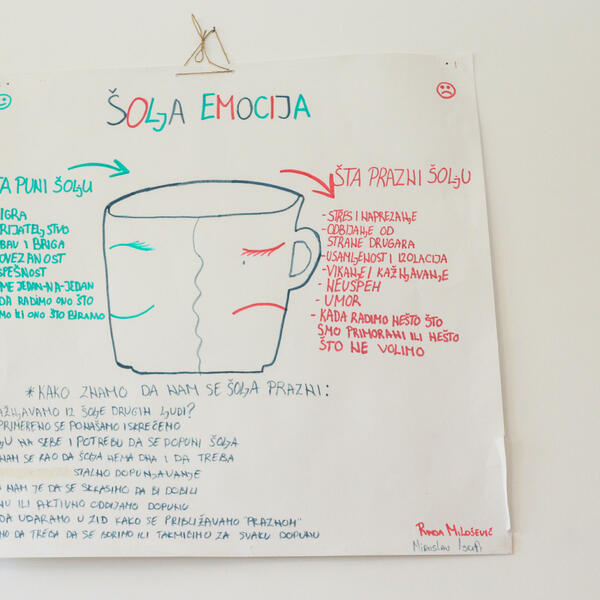 ŠOLJA EMOCIJA
TA PUNI ŠOLJU
IGRA
RIJATELJSTVO
BAV I BRIGA
OVEZANOST
SPEŠNOST
ME JEDAN-NA-JEDAN
DA RADIMO ONO ŠTO
MO ILI ONO ŠTO BIRAMO
ŠTA PRAZNI ŠOLJU
- STRES I NAPREZANJE
- ODBIJANJE OD
STRANE DRUGARA
- USAMLJENOST I IZOLACIJA
- VIKANJE I KAŽNJAVANJE
- NEUSPEH
- UMOR
- KADA RADIMO NEŠTO ŠTO
SMO PRIMORANI ILI NEŠTO
ŠTO NE VOLIMO
*KAKO ZNAMO DA NAM SE ŠOLJA PRAZNI:
IZ ŠOLJE DRUGIH LJUDI?
PRIMERENO SE PONAŠAMO ISKREĆEMO
JU NA SEBE I POTREBU DA SE DOPUNI ŠOLJA
NAM SE KAO DA ŠOLJA NEMA DNA I DA TREBA
STALNO DOPUNJAVANJE
NAM JE DA SE SKRASIMO DA BI DOBILI
NU ILI AKTIVNO ODBIJAMO DOPUNU
DA UDARAMO U ZID KAKO SE PRIBLIŽAVAMO "PRAZNOM"
MO DA TREBA DA SE BORIMO ILI TAKMIČIMO ZA SVAKU DOPUNU
MILOŠEVIĆ